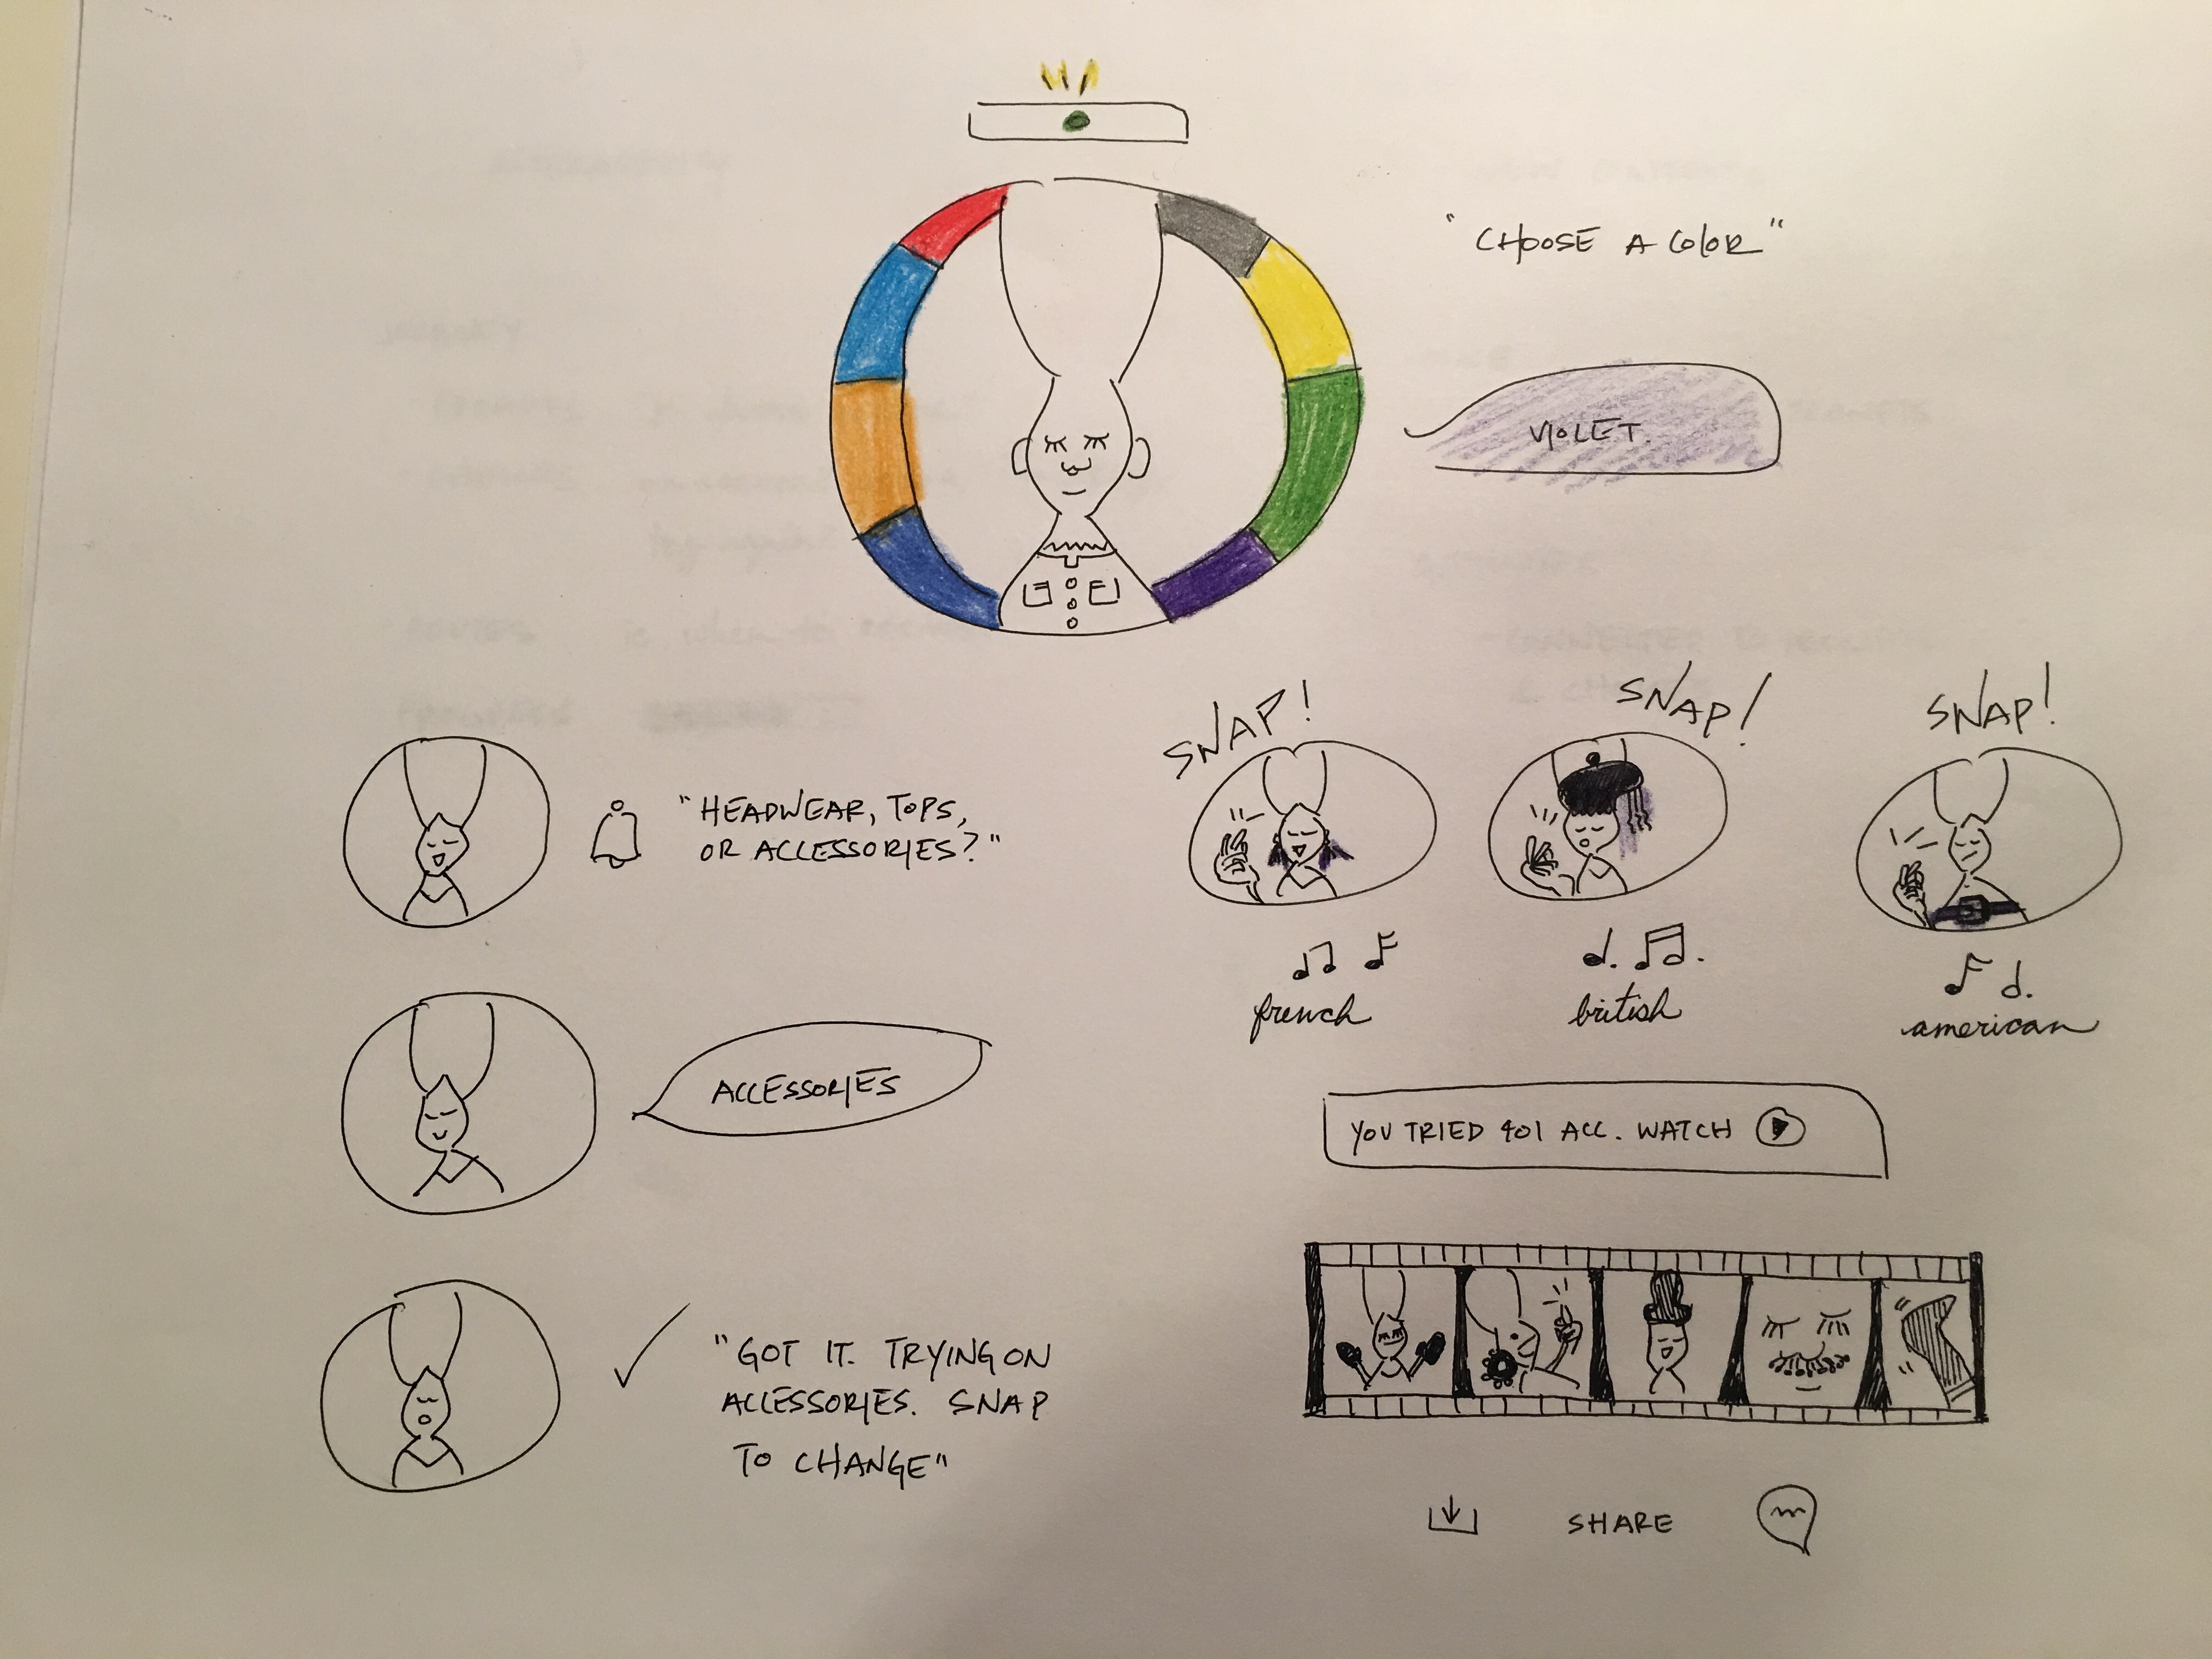 "CHOOSE A COLOR"
VIOLET.
"HEADWEAR, TOPS,
OR ACCESSORIES?"
ACCESSORIES
"GOT IT. TRYING ON
ACCESSORIES. SNAP
TO CHANGE"
SNAP!
SNAP!
SNAP!
french
british
american
YOU TRIED 401 ACC. WATCH
SHARE